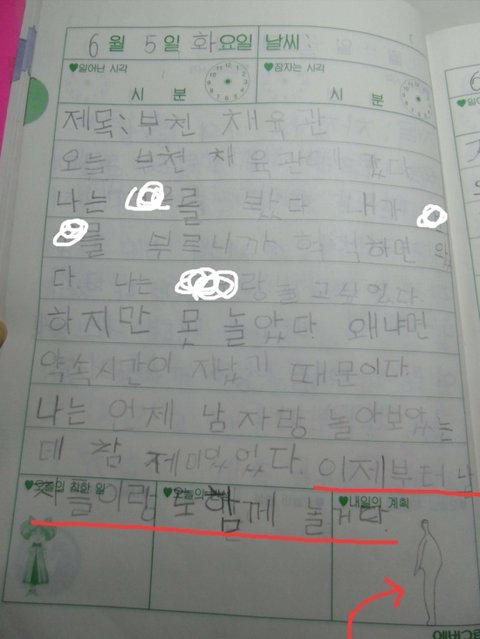 6월 5일 화요일 날씨:
♥일어난 시각 ♥잠자는 시각
시 분 시 분
제목: 부천 채육관
오늘 부천 채육관에 갔다.
나는 를 봤다. 내가
를 부르니가 헉 헉하면 왔
다. 나는 랑 놀고 싶었다.
하지만 못 놀았다. 왜냐면
약속시간이 지났기 때문이다.
나는 언제 남자랑 놀아보았는
데 참 제미있었다. 이제부터 남
자들이랑 도 함께 놀거다.
♥오늘의 착한 일 ♥내일의 계획